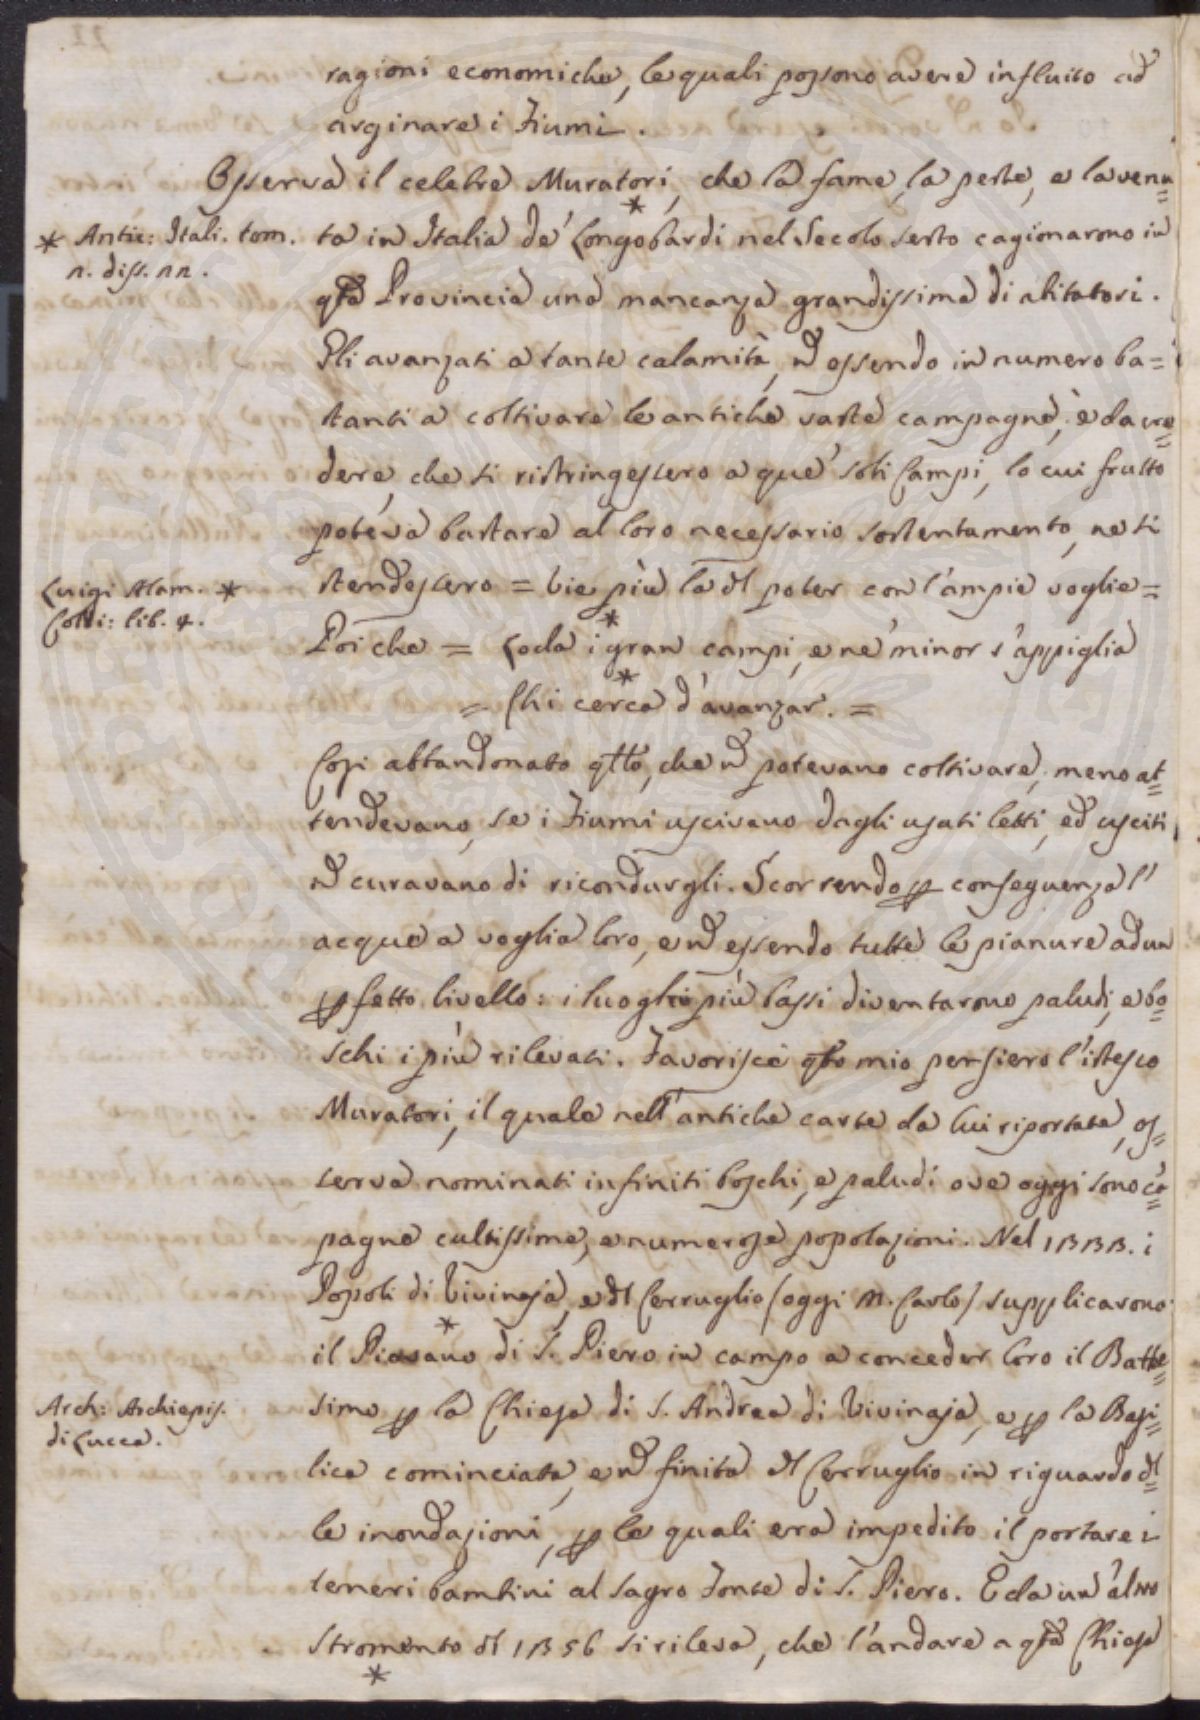 ragioni economiche, le quali possono avere influito ad
arginare i Fiumi.
Osserva il celebre Muratori, che la fame, la peste, e la venu=
* Antic: Itali. tom.
1. diss. 21.
ta in Italia de' Longobardi nel Secolo sesto cagionarono in
qta Provincia una mancanza grandissima di abitatori.
Gli avanzati a tante calamità, nō essendo in numero ba=
stanti a coltivare le antiche vaste campagne, è da cre=
dere, che si ristringessero a que' soli Campi, lo cui frutto
poteva bastare al loro necessario sostentamento, ne si
Luigi Alam. *
Colti: lib. 4.
stendessero = Vie più la dl poter con l'ampie voglie =
Poi che = Loda i gran campi, e ne' minor s'appiglia
= Chi cerca d'avanzar. =
Cosi abbandonato qllo, che nō potevano coltivare, meno at=
tendevano, se i Fiumi uscivano dagli usati letti, ed usciti
nō curavano di ricondurgli. Scorrendo p conseguenza l'
acque a voglia loro, e nō essendo tutte le pianure ad un
pfetto livello: i luoghi più bassi diventarono paludi, e bo=
schi i più rilevati. Favorisce qto mio pensiero l'istesso
Muratori, il quale nell'antiche carte da lui riportate, os=
serva nominati infiniti boschi, e paludi ove oggi sono cā=
pagne cultissime, e numerose popolazioni. Nel 1333. i
Popoli di Vivinaja, e dl Cerruglio (oggi M. Carlo) supplicarono
il Piovano di S. Piero in campo a conceder loro il Batte=
Arch: Archiepis.
di Lucca.
simo p la Chiesa di S. Andrea di Vivinaja, e p la Basi=
lica cominciata, e nō finita dl Cerruglio in riguardo dl=
le inondazioni, p le quali era impedito il portare i
teneri bambini al sagro Fonte di S. Piero. E da un' altro
stromento dl 1356 si rileva, che l'andare a qta Chiesa